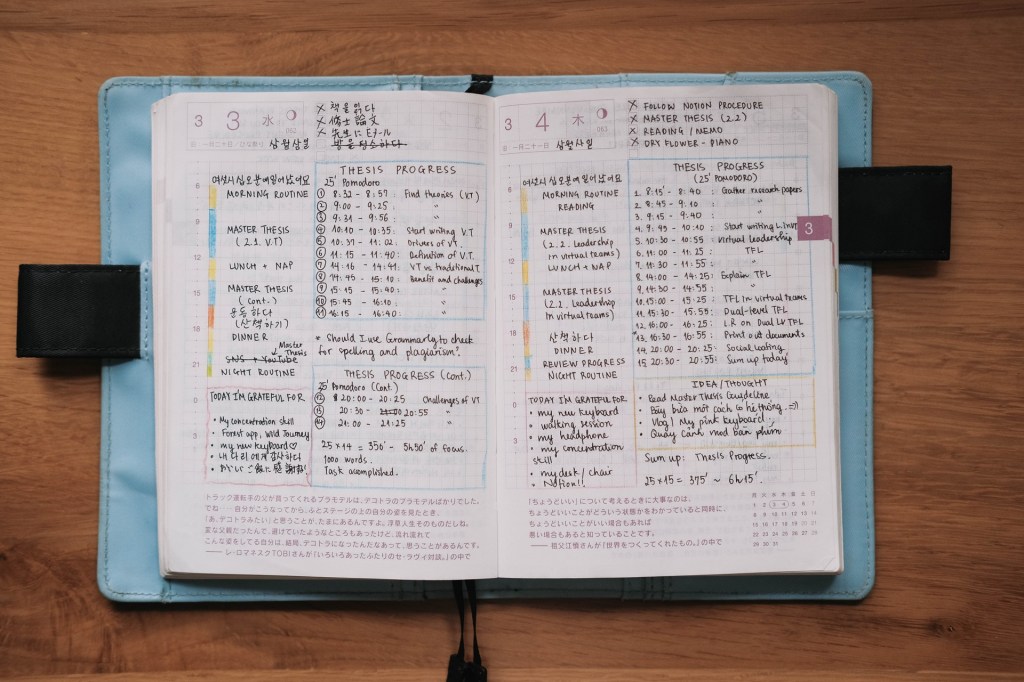 3 3 水
062
× 책을 읽다
× 修士論文
× 先生にEメール
방을 청소하다
삼월삼일
여섯시 십오분에 일어났어요
MORNING ROUTINE
MASTER THESIS
(2.1. V.T)
LUNCH + NAP
MASTER THESIS
(Cont.)
운동하다
(산책하기)
DINNER
Master
Thesis
SNS → YouTube
NIGHT ROUTINE
6
9
12
15
18
21
0
3
TODAY I'M GRATEFUL FOR
• My concentration skill
• Forest app, Wild Journey
• my new keyboard ♡
• 내 다리에게 감사하다
THESIS PROGRESS
25' Pomodoro
① 8:32 - 8:57 : Find theories (VT)
② 9:00 - 9:25 : "
③ 9:31 - 9:56 : "
④ 10:10 - 10:35: Start writing V.T
⑤ 10:37 - 11:02: Drivers of VT.
⑥ 11:15 - 11:40: Definition of V.T.
⑦ 14:16 - 14:41: VT vs traditional T.
⑧ 14:45 - 15:10: Benefit and challenges
⑨ 15:15 - 15:40: "
⑩ 15:45 - 16:10: "
⑪ 16:15 - 16:40: "
* Should I use Grammarly to check
for spelling and plagiarism?
THESIS PROGRESS (Cont.)
25' Pomodoro (Cont.)
⑫ 20:00 - 20:25 Challenges of VT
⑬ 20:30 - 21:00 20:55 "
⑭ 21:00 - 21:25 "
25 x 14 = 350' - 5h50' of focus.
1000 words.
Task accomplished.
トラック運転手の父が買ってくれるプラモデルは、デコトラのプラモデルばかりでした。
でね……自分がこうなってから、ふとステージの上の自分の姿を見たとき、
「あ、デコトラみたい」と思うことが、たまにあるんですよ。浮草人生そのものだしね。
変な父親だったんで、避けていたようなところもあったけど、流れ流れて
こんな姿をしてる自分は、結局、デコトラになったんだなあって、思うことがあるんです。
――レ・ロマネスクTOBIさんが『いろいろあったふたりのセ・ラヴィ対談。』の中で
3 4 木
063
삼월사일
× FOLLOW NOTION PROCEDURE
× MASTER THESIS (2.2)
× READING / MEMO
× DRY FLOWER - PIANO
여섯시 십오분에 일어났어요
MORNING ROUTINE
READING
MASTER THESIS
(2.2. Leadership
in virtual teams)
LUNCH + NAP
MASTER THESIS
(2.2. Leadership
in virtual teams)
산책하다
DINNER
REVIEW PROGRESS
NIGHT ROUTINE
6
9
12
15
18
21
0
3
TODAY I'M GRATEFUL FOR
• my new keyboard
• walking session
• my headphone
• my concentration
skill
• my desk / chair
• Notion!!
THESIS PROGRESS
(25' POMODORO)
1. 8:15' - 8:40 : Gather research papers
2. 8:45 - 9:10 : "
3. 9:15 - 9:40 : "
4. 9:45 - 10:10 : Start writing L.inVT
5. 10:30 - 10:55 : Virtual leadership
6. 11:00 - 11:25 : TFL
7. 11:30 - 11:55 : "
8. 14:00 - 14:25: Explain TFL
9. 14:30 - 14:55: "
10. 15:00 - 15:25 : TFL in virtual teams
11. 15:30 - 15:55: Dual-level TFL
12. 16:00 - 16:25 : L.R on Dual LV TFL
13. 16:30 - 16:55: Print out documents
14. 20:00 - 20:25: Social loafing
15. 20:30 - 20:55: Sum up today
3
IDEA / THOUGHT
• Read Master Thesis Guideline
• Bày bừa một cách có hệ thống. =))
• Vlog | My pink keyboard
• Quay cảnh mod bàn phím
Sum up: Thesis Progress.
25 x 15 = 375' ~ 6h15'.
「ちょうどいい」について考えるときに大事なのは、
ちょうどいいことがどういう状態かをわかっていると同時に、
ちょうどいいことがいい場合もあれば
悪い場合もあると知っていることです。
――祖父江慎さんが『世界をつくってくれたもの。』の中で
月 火 水 木 金 土 日
1 2 3 4 5 6 7
8 9 10 11 12 13 14
15 16 17 18 19 20 21
22 23 24 25 26 27 28
29 30 31